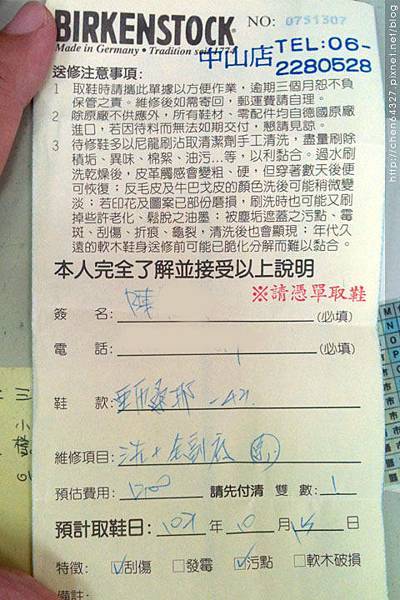 BIRKENSTOCK
Made in Germany • Tradition seit 1774
NO: 0751307
中山店 TEL:06-
2280528
送修注意事項:
1 取鞋時請攜此單據以方便作業，逾期三個月恕不負
保管之責。維修後如需寄回，郵運費請自理。
2 除原廠不供應外，所有鞋材、零配件均自德國原廠
進口，若因待料而無法如期交付，懇請見諒。
3 待修鞋多以尼龍刷沾取清潔劑手工清洗，盡量刷除
積垢、異味、棉絮、油污…等，以利黏合。過水刷
洗乾燥後，皮革觸感會變粗、硬，但穿著數天後便
可恢復；反毛皮及牛巴戈皮的顏色洗後可能稍微變
淡；若印花及圖案已部份磨損，刷洗時也可能又刷
掉些許老化、鬆脫之油墨；被塵垢遮蓋之污點、霉
斑、刮傷、折痕、龜裂，清洗後也會顯現；年代久
遠的軟木鞋身送修前可能已脆化分解而難以黏合。
本人完全了解並接受以上說明
※請憑單取鞋
簽 名: 陳 (必填)
電 話: (必填)
鞋 款: -42
維修項目: 洗+
預估費用: 1200 請先付清 雙 數: 1
預計取鞋日: 102 年 10 月 日
特徵: ☑刮傷 □發霉 ☑污點 □軟木破損
備註:
三
小
http://chen64327.pixnet.net/blog